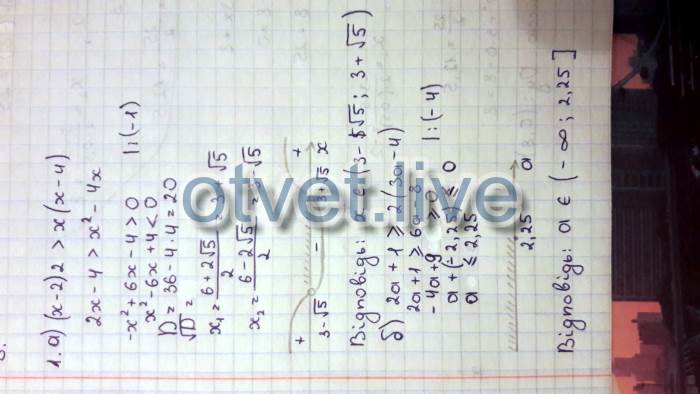 1. а) (x-2)2 > x(x-4)
2x-4 > x²-4x
-x²+6x-4>0 |:(-1)
x²-6x+4<0
D = 36-4·4=20
√D =
x₁ = (6+2√5)/2 = 3+√5
x₂ = (6-2√5)/2 = 3-√5
+ - +
3-√5 3+√5 x
Відповідь: x ∈ (3-√5; 3+√5)
б) 2a+1 ≥ 2(3a-4)
2a+1 ≥ 6a-8
-4a+9 ≥ 0 |:(-4)
a+(-2,25) ≤ 0
a ≤ 2,25
2,25 a
Відповідь: a ∈ (-∞; 2,25]
otvet.live